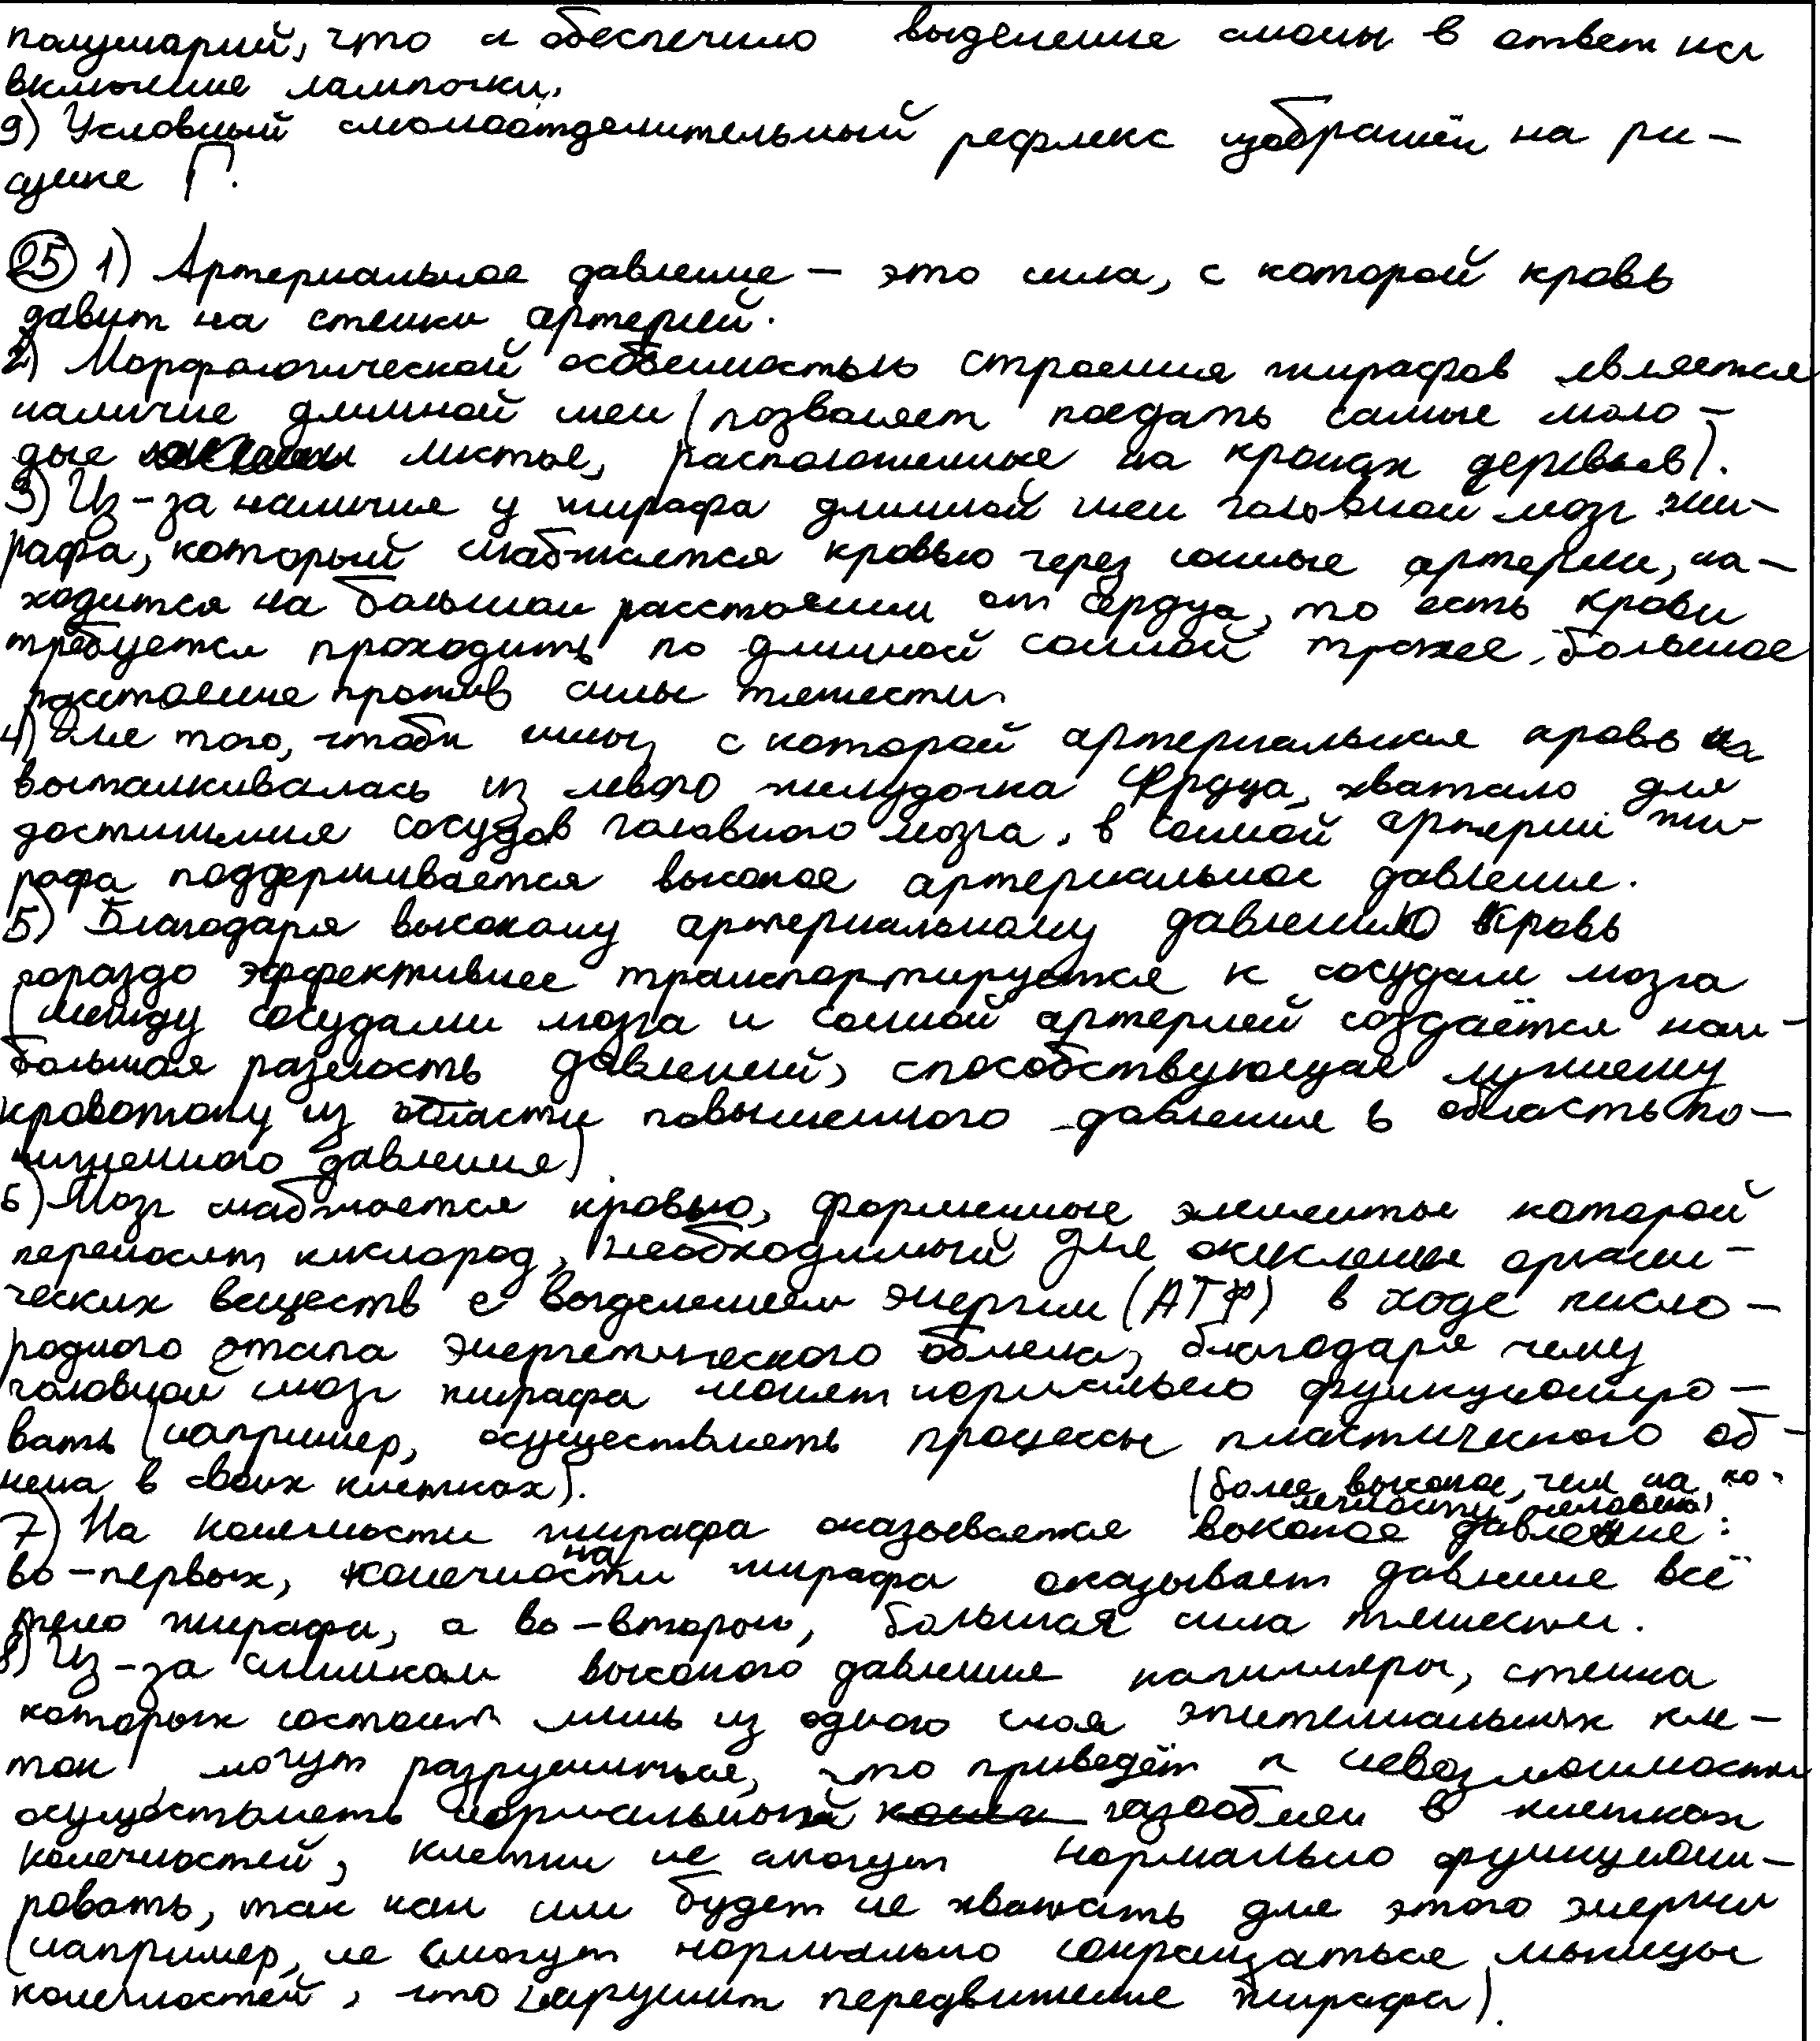 полушарий, что и обеспечило выделение слюны в ответ на
включение лампочки.
9) Условный слюноотделительный рефлекс изображён на ри-
сунке Г.
25 1) Артериальное давление – это сила, с которой кровь
давит на стенки артерий.
2) Морфологической особенностью строения жирафов является
наличие длинной шеи (позволяет поедать самые моло-
дые листья, расположенные на кронах деревьев).
3) Из-за наличия у жирафа длинной шеи головной мозг жи-
рафа, который снабжается кровью через сонные артерии, на-
ходится на большом расстоянии от сердца, то есть крови
требуется проходить по длинной сонной большое
расстояние против силы тяжести.
4) Для того, чтобы силы, с которой артериальная кровь
выталкивалась из левого желудочка сердца, хватало для
достижения сосудов головного мозга, в сонной артерии жи-
рафа поддерживается высокое артериальное давление.
5) Благодаря высокому артериальному давлению кровь
гораздо эффективнее транспортируется к сосудам мозга
(между сосудами мозга и сонной артерией создаётся наи-
большая разность давлений, способствующая лучшему
кровотоку из области повышенного давления в область по-
ниженного давления).
6) Мозг снабжается кровью, форменные элементы которой
переносят кислород, необходимый для окисления органи-
ческих веществ с выделением энергии (АТФ) в ходе кисло-
родного этапа энергетического обмена, благодаря чему
головной мозг жирафа может нормально функциониро-
вать (например, осуществлять процессы пластического об-
мена в своих клетках).
(более высокое, чем на ко-
нечности человека)
7) На конечности жирафа оказывается высокое давление:
во-первых, на конечности жирафа оказывает давление всё
тело жирафа, а во-вторых, большая сила тяжести.
8) Из-за слишком высокого давления капилляры, стенка
которых состоит лишь из одного слоя эпителиальных кле-
ток, могут разрушиться, что приведёт к невозможности
осуществлять нормальный газообмен в клетках
конечностей, клетки не смогут нормально функциони-
ровать, так как им будет не хватать для этого энергии
(например, не смогут нормально сокращаться мышцы
конечностей, что нарушит передвижение жирафа).